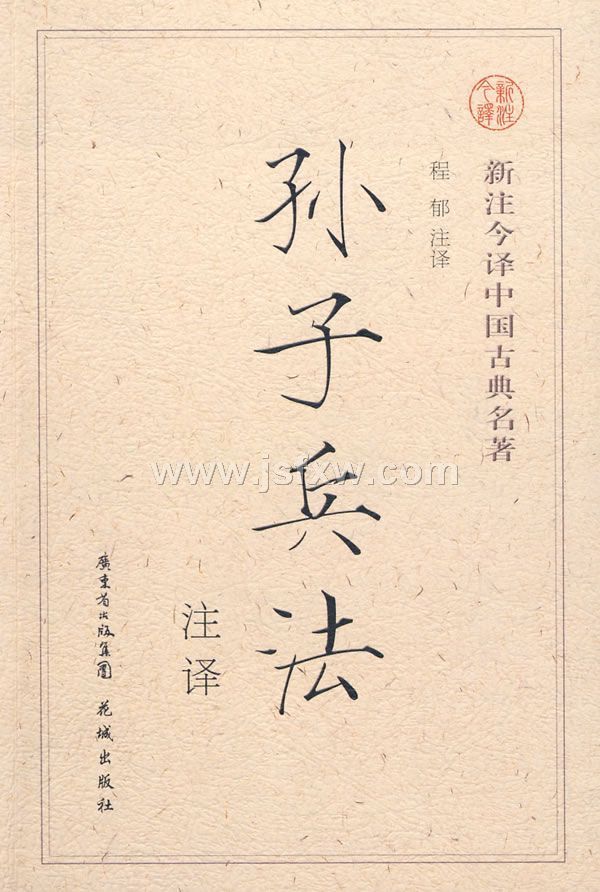 新注今譯
新注今译中国古典名著
程郁 注译
孙子兵法
注译
廣東省出版集團 花城出版社
www.jsfxw.com